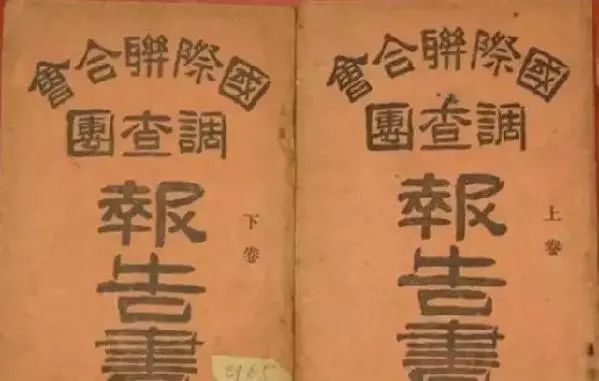 國際聯合會
調查團
報告書
上卷
國際聯合會
調查團
報告書
下卷